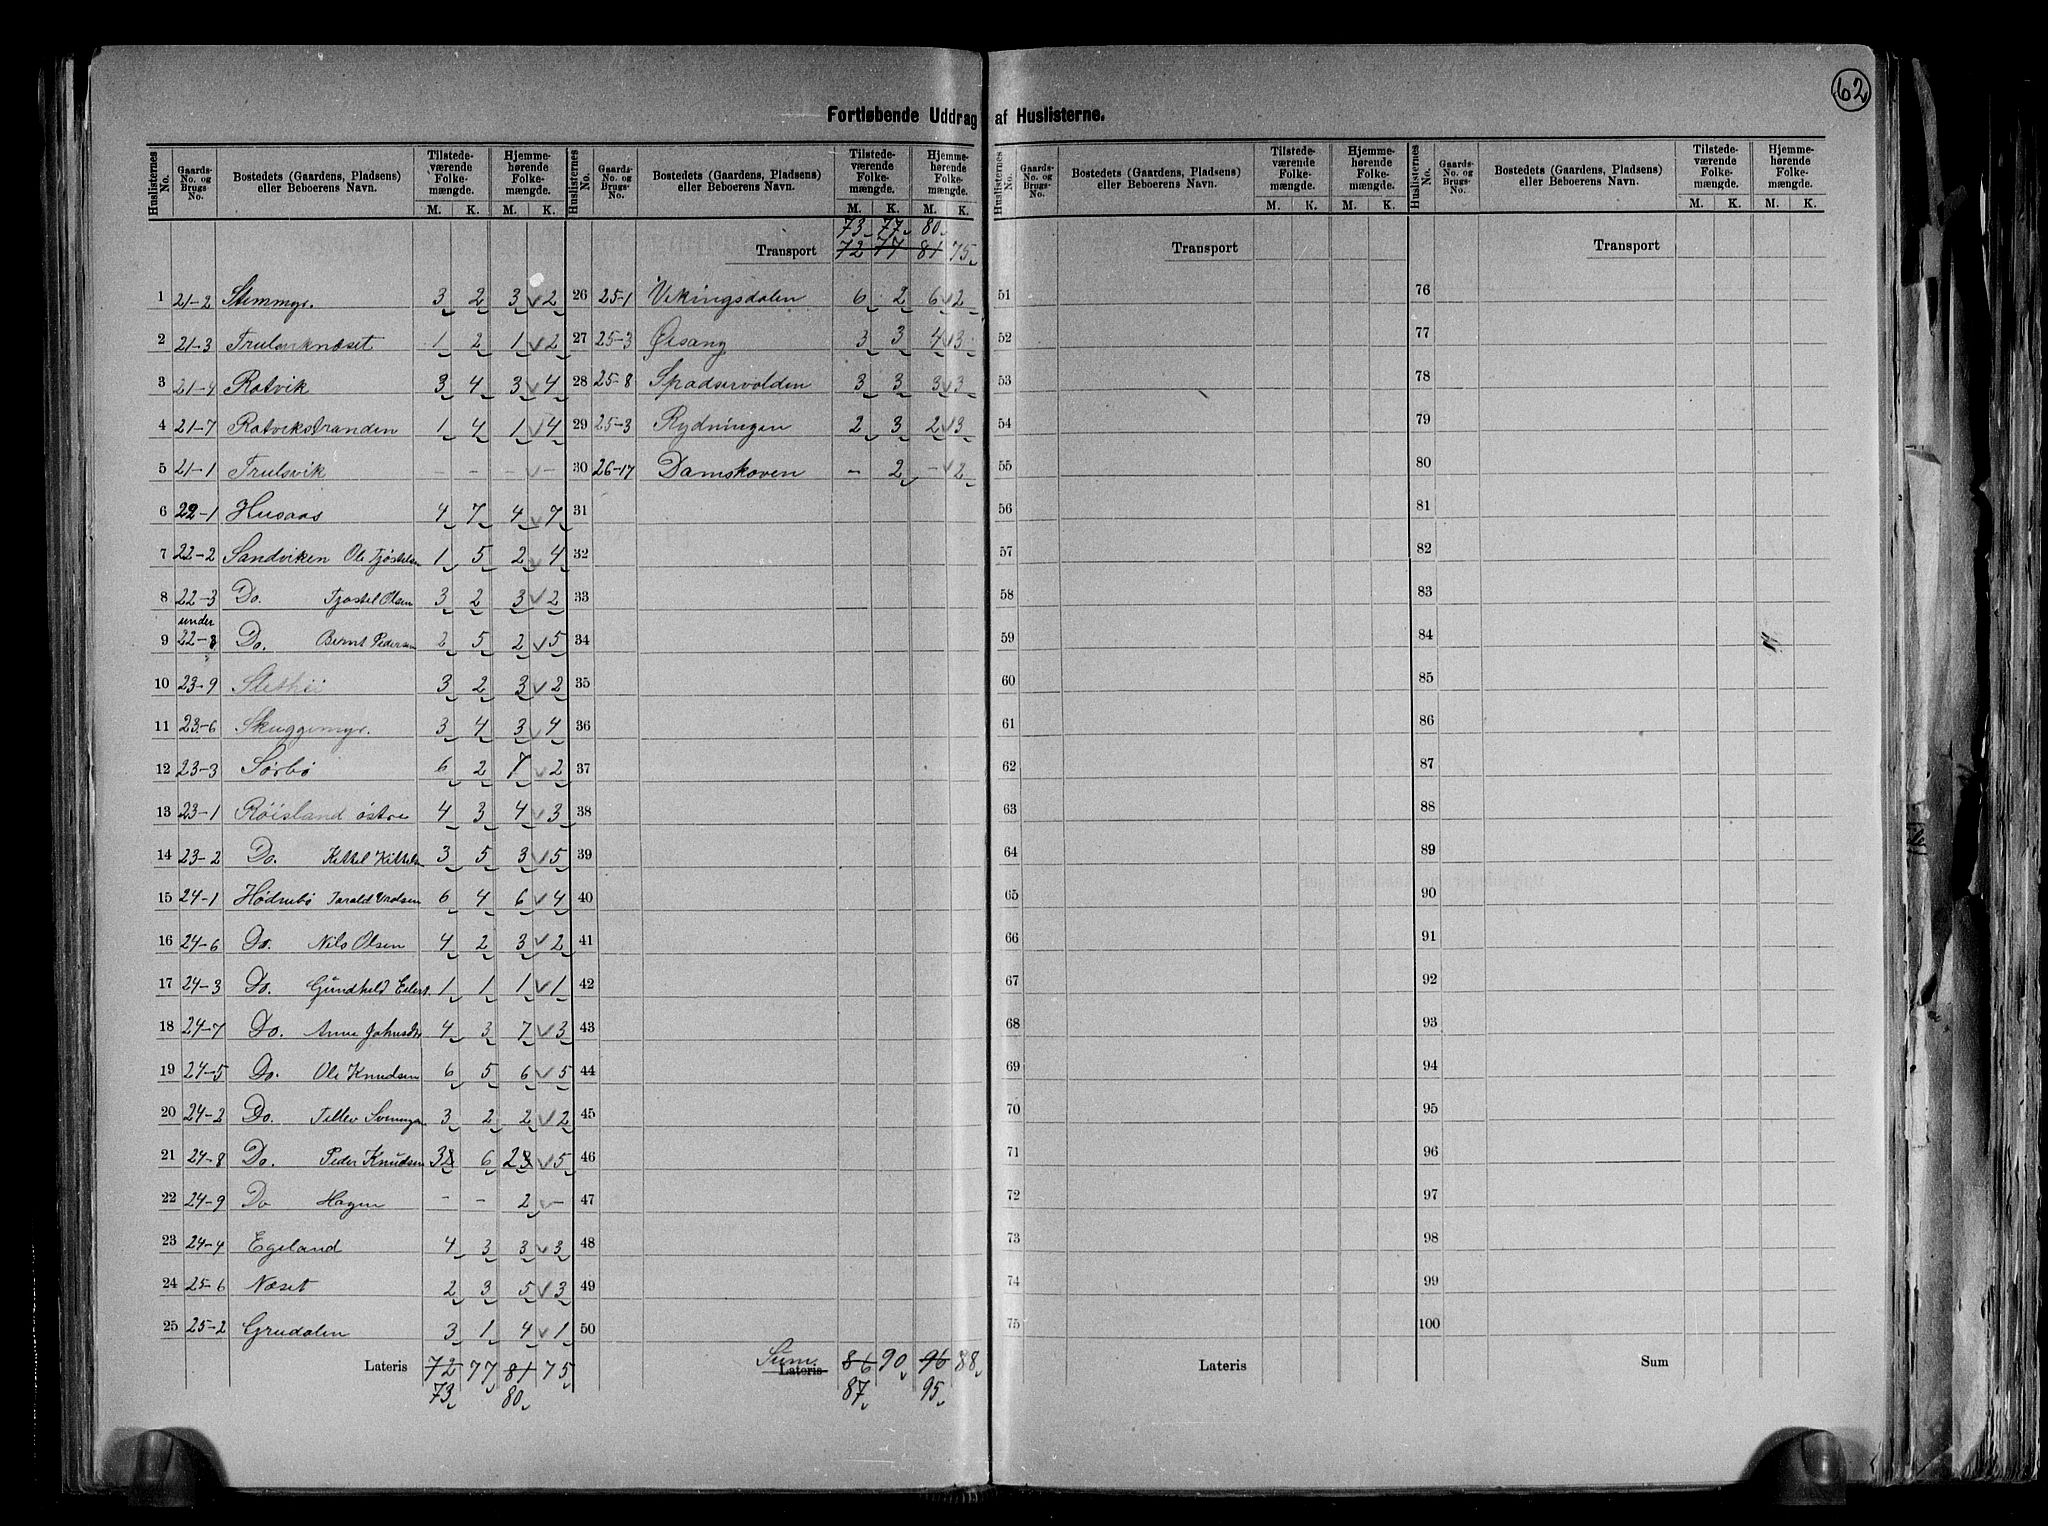 62
Fortløbende Uddrag af Huslisterne.
Huslisternes No. Gaards-No. og Brugs-No. Bostedets (Gaardens, Pladsens) eller Beboerens Navn. Tilstedeværende Folkemængde. M. K. Hjemmehørende Folkemængde. M. K.
1 21-2 Stemmyr. 3 2 3 2
2 21-3 Trulsviknæset 1 2 1 2
3 21-4 Rotvik 3 4 3 4
4 21-7 Rotvikstranden 1 4 1 4
5 21-1 Trulsvik - - - -
6 22-1 Husaas 4 7 4 7
7 22-2 Sandviken Ole Tjøstelsen 1 5 2 4
8 22-3 Do. Tjøstel Olsen 3 2 3 2
under
9 22-3 Do. Bernt Pedersen 2 5 2 5
10 23-9 3 2 3 2
11 23-6 Skuggemyr. 3 4 3 4
12 23-3 Sørbø 6 2 7 2
13 23-1 Røisland østre 4 3 4 3
14 23-2 Do. Kittel Kittelsen 3 5 3 5
15 24-1 Hødnebø Tarald 6 4 6 4
16 24-6 Do. Nils Olsen 4 2 3 2
17 24-3 Do. Gundhild Eilert. 1 1 1 1
18 24-7 Do. Anne Johnsdtr 4 3 7 3
19 24-5 Do. Ole Knudsen 6 5 6 5
20 24-2 Do. Tellev 3 2 2 2
21 24-8 Do. Peder Knudsen 3 6 2 5
22 24-9 Do Hagen - - 2 -
23 24-4 Egeland 4 3 3 3
24 25-6 Næset 2 3 5 3
25 25-2 Grudalen 3 1 4 1
Lateris 72 77 81 75
73 80
Huslisternes No. Gaards-No. og Brugs-No. Bostedets (Gaardens, Pladsens) eller Beboerens Navn. Tilstedeværende Folkemængde. M. K. Hjemmehørende Folkemængde. M. K.
73 77 80
Transport 72 77 81 75
26 25-1 Vikingsdalen 6 2 6 2
27 25-3 Øisang 3 3 4 3
28 25-8 Spadservolden 3 3 3 3
29 25-3 Rydningen 2 3 2 3
30 26-17 Damskoven - 2 - 2
31
32
33
34
35
36
37
38
39
40
41
42
43
44
45
46
47
48
49
50
Sum.
Lateris 86 90 96 88
87 95
Huslisternes No. Gaards-No. og Brugs-No. Bostedets (Gaardens, Pladsens) eller Beboerens Navn. Tilstedeværende Folkemængde. M. K. Hjemmehørende Folkemængde. M. K.
Transport
51
52
53
54
55
56
57
58
59
60
61
62
63
64
65
66
67
68
69
70
71
72
73
74
75
Lateris
Huslisternes No. Gaards-No. og Brugs-No. Bostedets (Gaardens, Pladsens) eller Beboerens Navn. Tilstedeværende Folkemængde. M. K. Hjemmehørende Folkemængde. M. K.
Transport
76
77
78
79
80
81
82
83
84
85
86
87
88
89
90
91
92
93
94
95
96
97
98
99
100
Sum